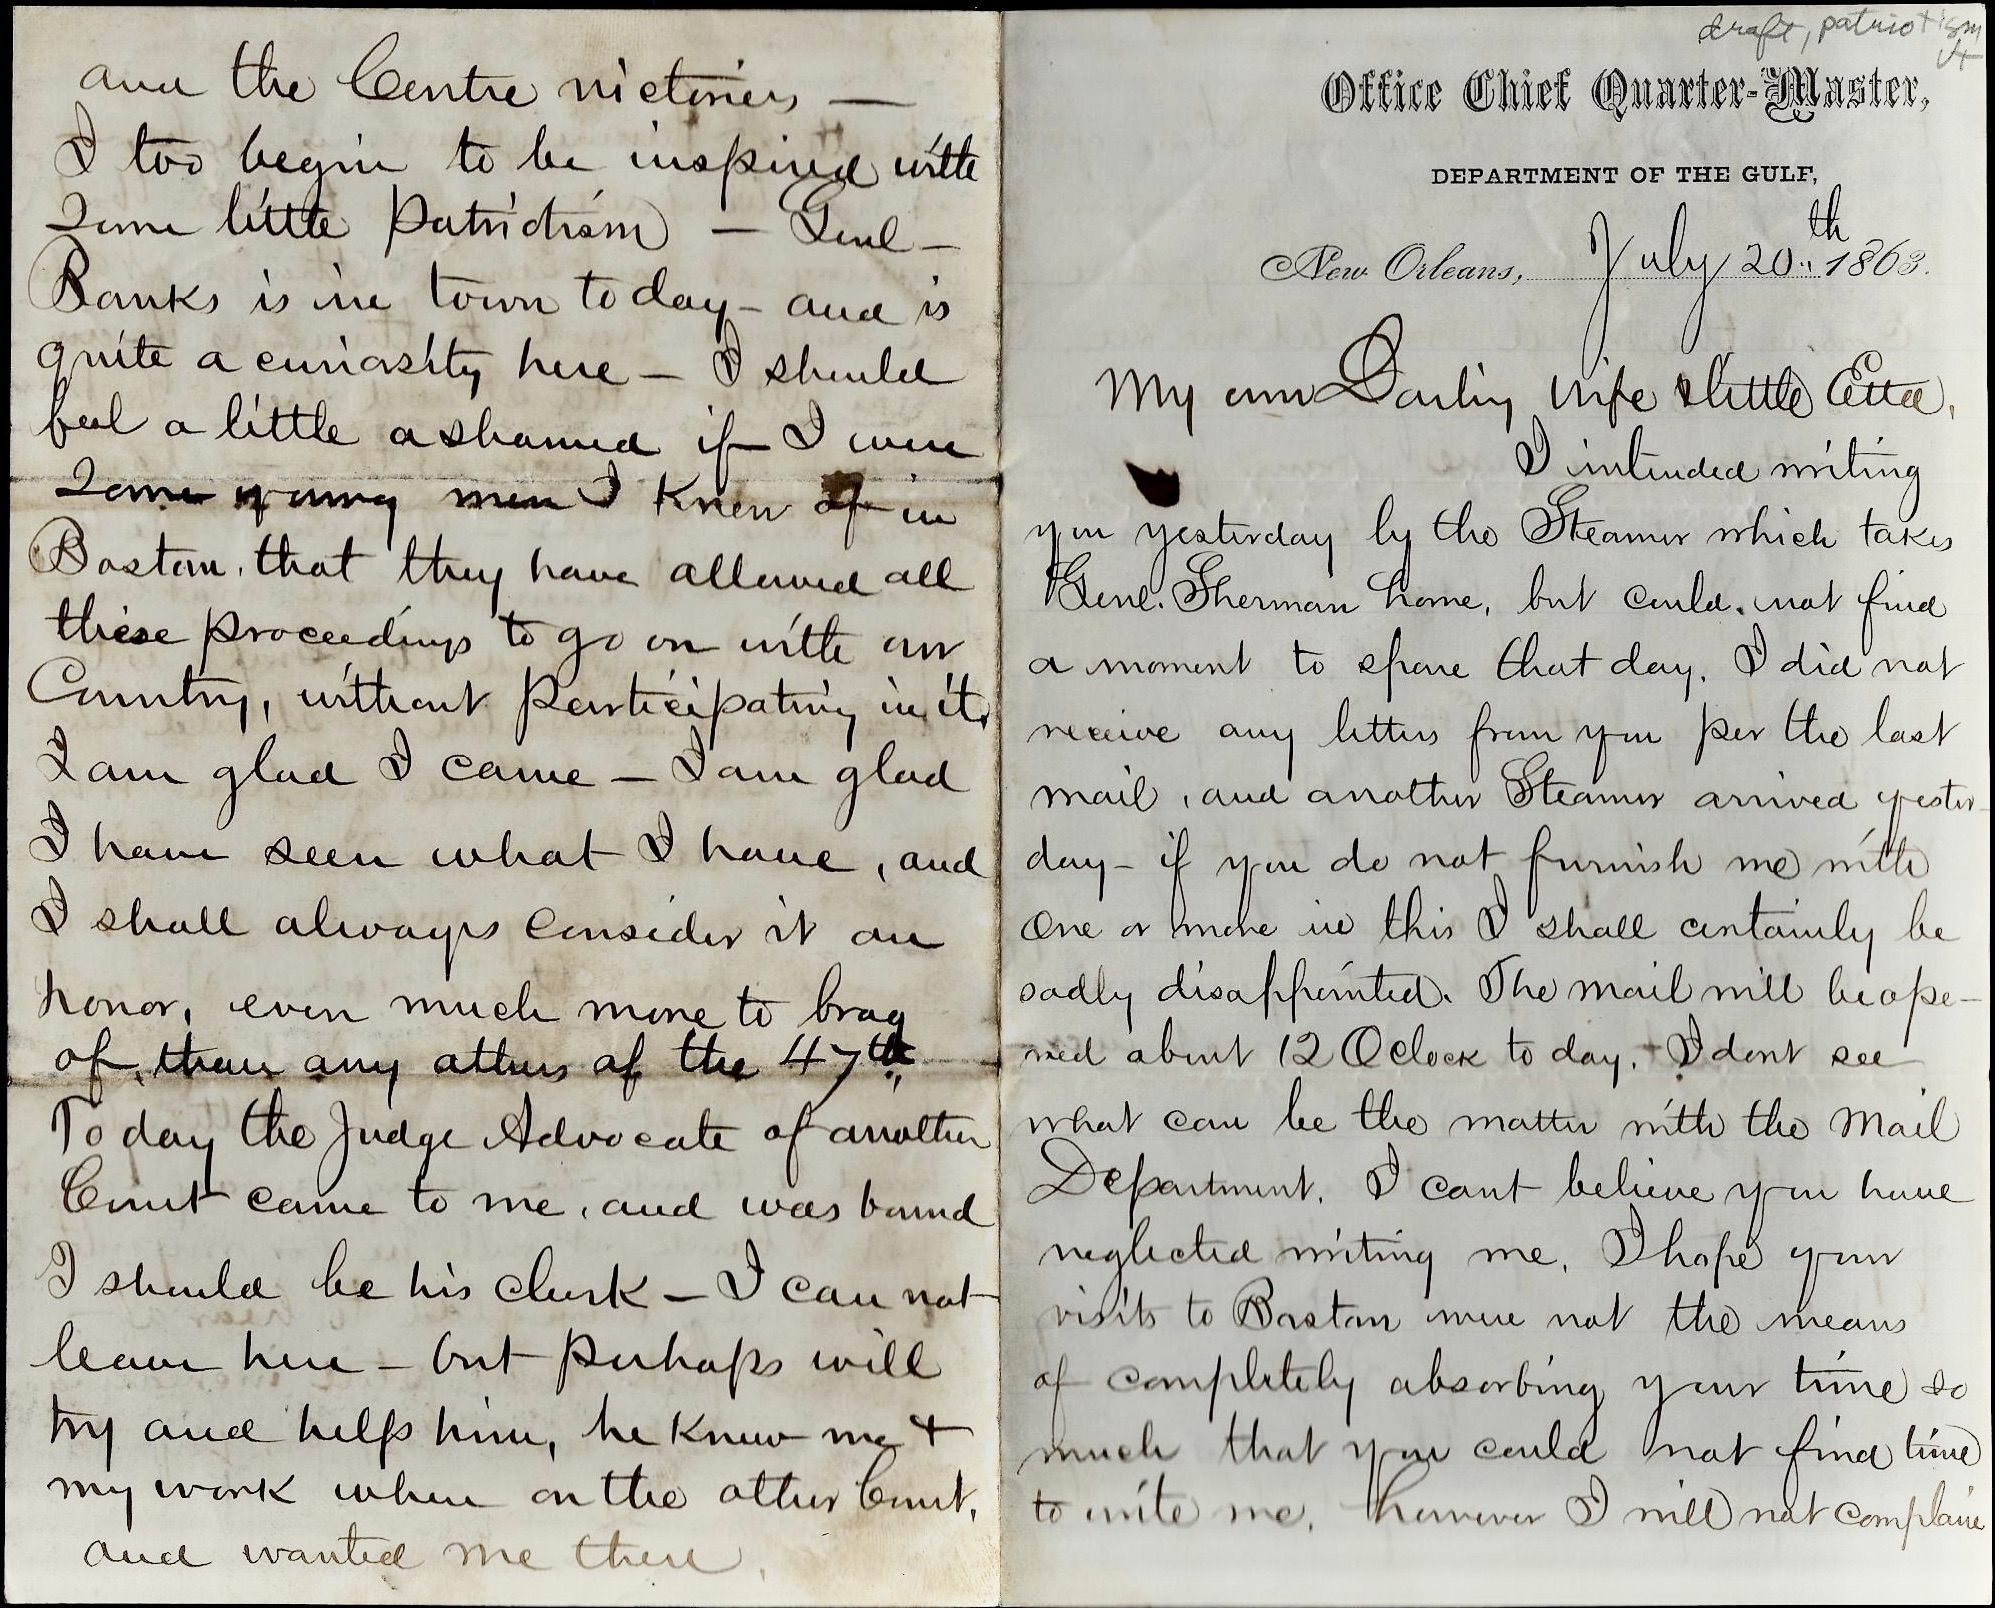 draft, patriotism
Office Chief Quarter-Master,
DEPARTMENT OF THE GULF,
New Orleans, July 20th 1863.
My own Darling wife & little Etta,
I intended writing
you yesterday by the Steamer which takes
Genl. Sherman home, but could not find
a moment to spare that day. I did not
receive any letters from you per the last
mail, and another Steamer arrived yester-
day - if you do not furnish me with
one or more in this I shall certainly be
sadly disappointed. The mail will be ope-
ned about 12 OClock to day. I dont see
what can be the matter with the Mail
Department. I cant believe you have
neglected writing me. I hope your
visits to Boston were not the means
of completely absorbing your time so
much that you could not find time
to write me. however I will not complain
and the Centre victories —
I too begin to be inspired with
some little patriotism — Genl -
Banks is in town today - and is
quite a curiosity here — I should
feel a little ashamed if I were
some young men I know of in
Boston, that they have allowed all
these proceedings to go on with our
Country, without participating in it.
I am glad I came — I am glad
I have seen what I have, and
I shall always consider it an
honor, even much more to brag
of, than any others of the 47th
To day the Judge Advocate of another
Court came to me, and was bound
I should be his clerk — I can not
leave here — but perhaps will
try and help him, he knew me &
my work when on the other Court,
and wanted me there.